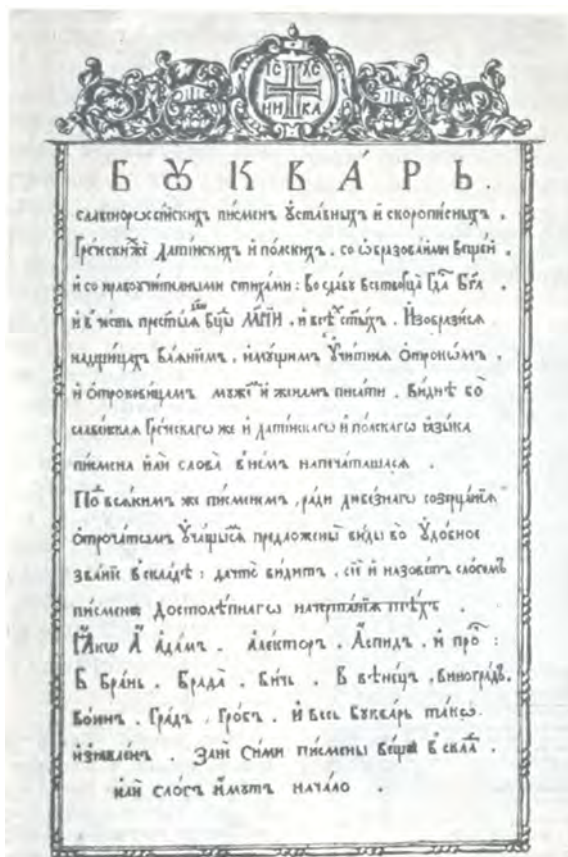 ІС ХС
НИ КА
БꙊКВА́РЬ.
славенорѡссійскихъ пи́сменъ ᲂу҆ста́вныхъ и҆ скоропи́сныхъ.
Гре́ческихже Лати́нскихъ и҆ по́лскихъ. со ѡ҆бразова́ньми веще́й.
и҆ со нравоꙋчи́тилными стиха́ми: Во сла́вꙋ всетво́рца̀ Гдⷭ҇а Бг҃а
и҆ в че́сть пречⷭ҇тыѧ Бцⷣы МР҃ІИ, и҆ всѣ́хъ ст҃ы́хъ. И҆зобрази́сѧ
и҆мꙋ́щимъ ᲂу҆чи́тисѧ ѻ҆трокѡ́мъ.
и҆ ѻ҆трокови́цамъ мꙋже́мъ и҆ жена́мъ писа́ти. Ви́днѣ бо
славе́нскаѧ Гре́ческагѡ же и҆ лати́нскагѡ и҆ по́лскагѡ ꙗ҆зы́ка
пи́смена и҆лѝ слова̀ в не́мъ напеча́ташасѧ.
По всѧ́кимъ же пи́сменемъ, ради любе́знагѡ созерца́нїѧ
ѻ҆троча́тѡмъ ᲂу҆ча́щымсѧ предложены̀ ви́ды во ᲂу҆до́бное
зва́нїе в скла́дѣ: да что̀ ви́дитъ, сїѐ и҆ назове́тъ сло́гомъ
пи́смене Достолѣ́пнагѡ начерта́нїѧ тѣ́хъ.
Ꙗ҆́кѡ А҆ А҆да́мъ. А҆ле́кторъ. А҆́спидъ. и҆ про́ч:
Б Бра́нь. Брада̀. Би́чь. В вѣне́цъ. виногра́дъ.
во́инъ. Гра́дъ. Гро́бъ. и҆ ве́сь Бꙋква́рь та́кѡ.
и҆з̾ѧвле́нъ. Занѐ Си́ми пи́смены ве́щи в скла́дъ.
и҆лѝ сло́гъ и҆́мꙋтъ нача́ло.